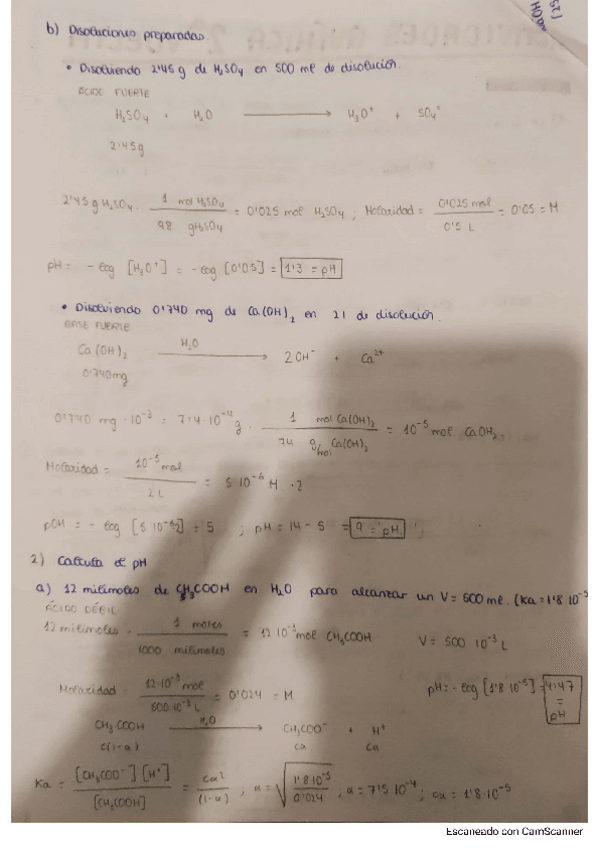 b) Disoluciones preparadas.
• Disolviendo 2'45 g de H₂SO₄ en 500 ml de disolución.
ÁCIDO FUERTE
H₂SO₄ + H₂O ⟶ H₃O⁺ + SO₄⁼
2'45g
2'45 g H₂SO₄ · 1 mol H₂SO₄ / 98 g H₂SO₄ = 0'025 mol H₂SO₄ ; Molaridad = 0'025 mol / 0'5 L = 0'05 = M
pH = - log [H₃O⁺] = - log [0'05] = 1'3 = pH
• Disolviendo 0'740 mg de Ca(OH)₂ en 2l de disolución.
BASE FUERTE
Ca(OH)₂ H₂O ⟶ 2OH⁻ + Ca²⁺
0'740mg
0'740 mg · 10⁻³ = 7'4 · 10⁻⁴ g · 1 mol Ca(OH)₂ / 74 g/mol Ca(OH)₂ = 10⁻⁵ mol CaOH₂
Molaridad = 10⁻⁵ mol / 2 L = 5 10⁻⁶ M · 2
pOH = - log = 5 ; pH = 14 - 5 = 9 = pH
2) Calcula el pH
a) 12 milimoles de CH₃COOH en H₂O para alcanzar un V = 500 ml. (Ka = 1'8 10⁻⁵
ÁCIDO DÉBIL
12 milimoles · 1 moles / 1000 milimoles = 12 10⁻³ mol CH₃COOH V = 500 10⁻³ L
Molaridad 12·10⁻³ mol / 500·10⁻³ L = 0'024 = M pH = - log [1'8 10⁻⁵] = 4'47 = pH
CH₃COOH H₂O ⟶ CH₃COO⁻ + H⁺
c(1-α) cα cα
Ka = [CH₃COO⁻] [H⁺] / [CH₃COOH] = cα² / (1-α) ; α = √ 1'8·10⁻⁵ / 0'024 ; α = 7'5 10⁻⁴ ; cα = 1'8·10⁻⁵
Escaneado con CamScanner